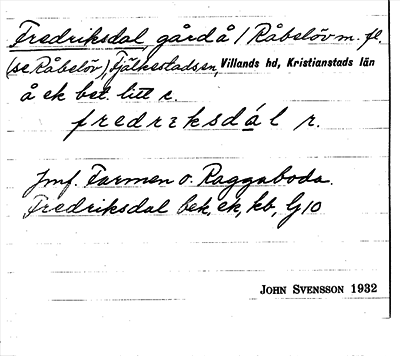 Fredriksdal, gård å 1 Råbelöv m. fl.
(se Råbelöv), Fjälkestads sn, Villands hd, Kristianstads län
å ek bet. litt c.
fredrɪksdál r.
Jmf. Farmen o. Raggaboda.
Fredriksdal bek, ek, kb, Gj 10
JOHN SVENSSON 1932